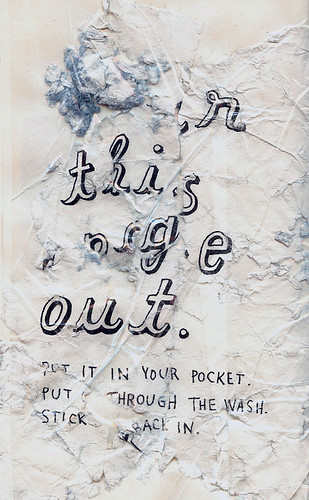 this
page
out.
PUT IT IN YOUR POCKET.
PUT THROUGH THE WASH.
STICK BACK IN.